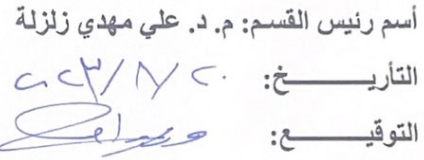 أسم رئيس القسم: م. د. علي مهدي زلزلة
التأريـــــــخ: ٢٠٢٣/٨/٢٠
التوقيـــــــع: